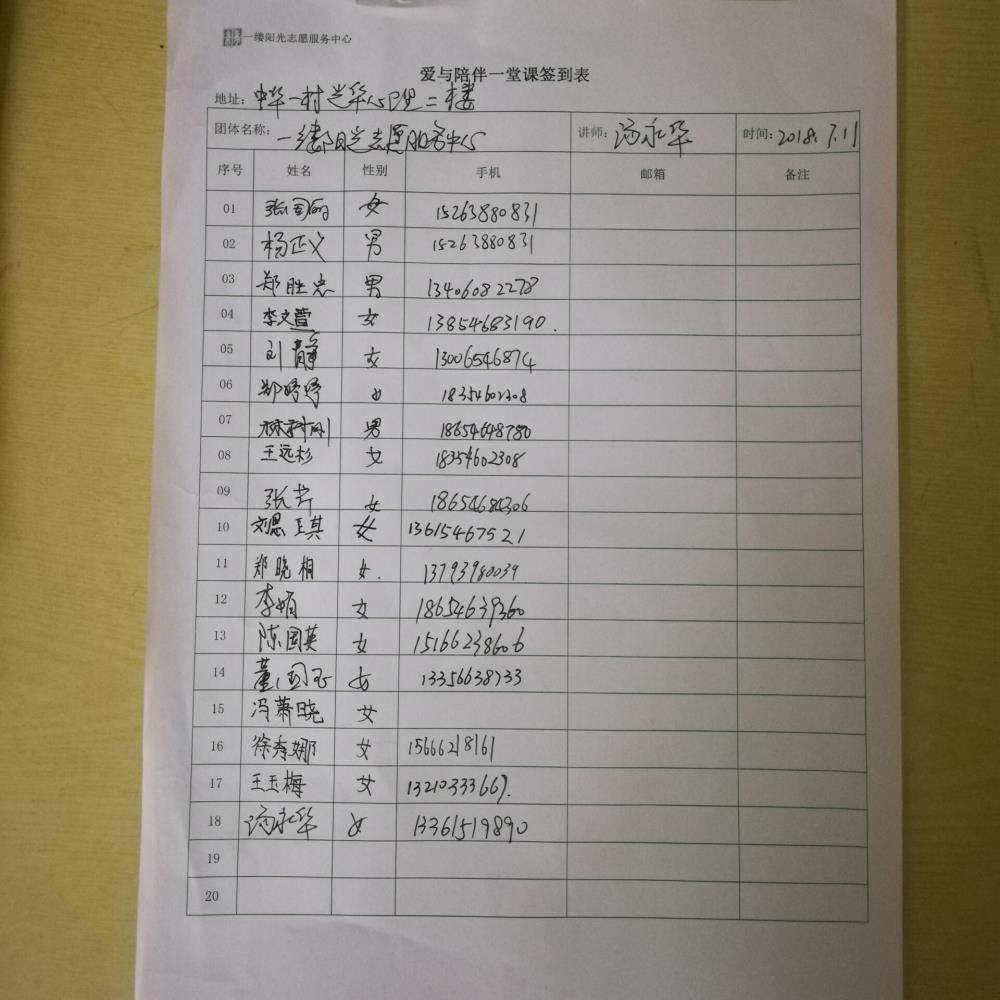 一缕阳光志愿服务中心
爱与陪伴一堂课签到表
地址：中华一村 华心理二楼
团体名称：一缕阳光志愿服务中心 讲师：汤永华 时间：2018.7.11
序号 姓名 性别 手机 邮箱 备注
01 张国丽 女 15263880831
02 杨正义 男 15263880831
03 郑胜忠 男 13406082278
04 李文萱 女 13854683190.
05 刘静 女 13006546874
06 郑婷婷 女 18354602308
07 林科刚 男 18654648780
08 王远杉 女 18354602308
09 张芹 女 18654684306
10 刘恩琪 女 13615467521
11 郑晓桐 女. 13793980039
12 李娟 女 18654639360
13 陈国英 女 15166238606
14 董国玉 女 13356638733
15 冯萧晓 女
16 徐秀娜 女 15666218161
17 王玉梅 女 13210333667.
18 汤永华 女 13361519890
19
20